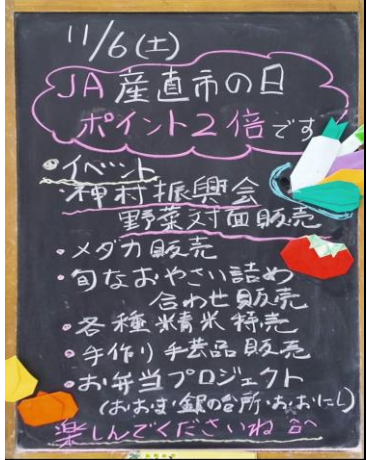 11/6(土)
JA産直市の日
ポイント2倍です
・イベント
神村振興会
野菜対面販売
・メダカ販売
・旬なおやさい詰め
合わせ販売
・各種米精米特売
・手作り手芸品販売
・お弁当プロジェクト
銀の台所
楽しんでくださいね